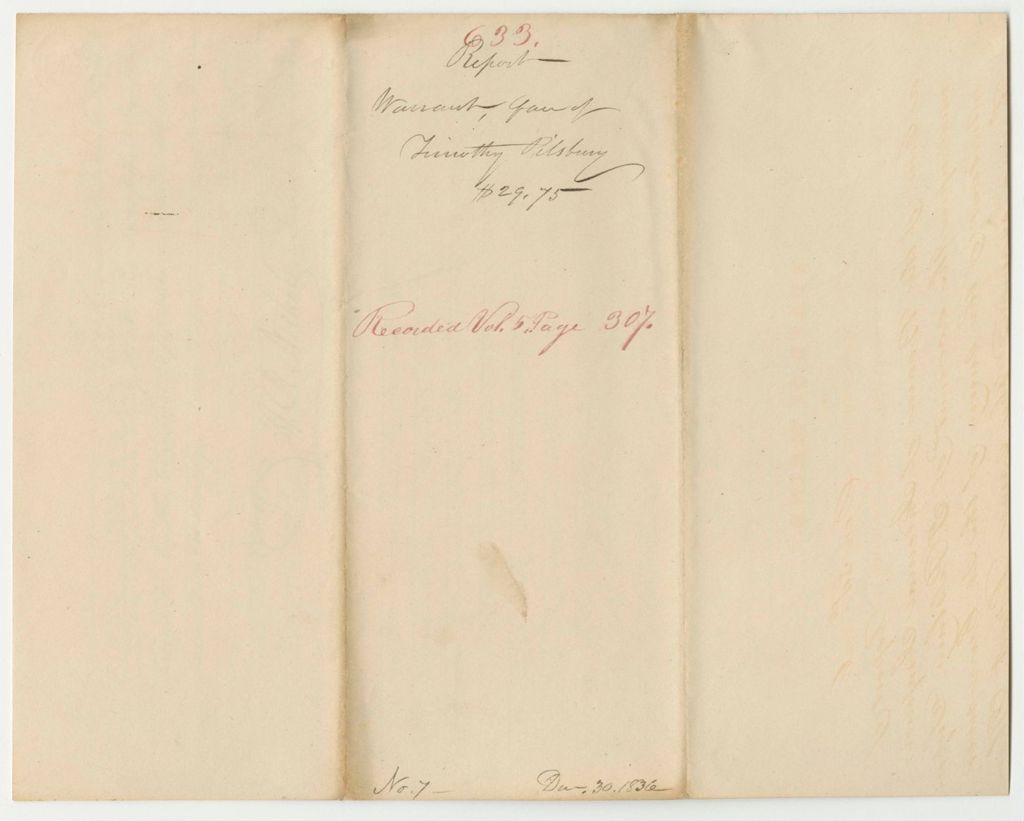 633.
Report
Warrant, fav of
Timothy Pilsbury
$29.75
Recorded Vol. 5. Page 307.
No. 7
Dec. 30. 1836